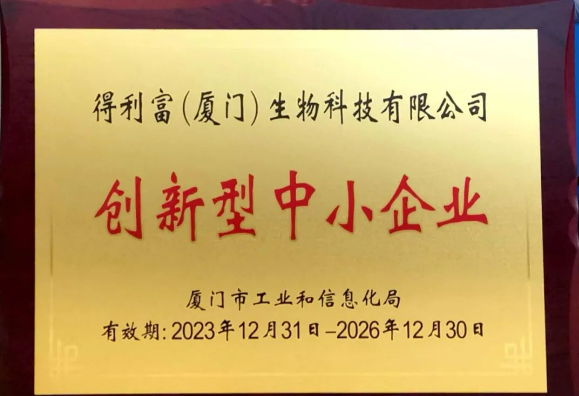 得利富(厦门)生物科技有限公司
创新型中小企业
厦门市工业和信息化局
有效期:2023年12月31日-2026年12月30日